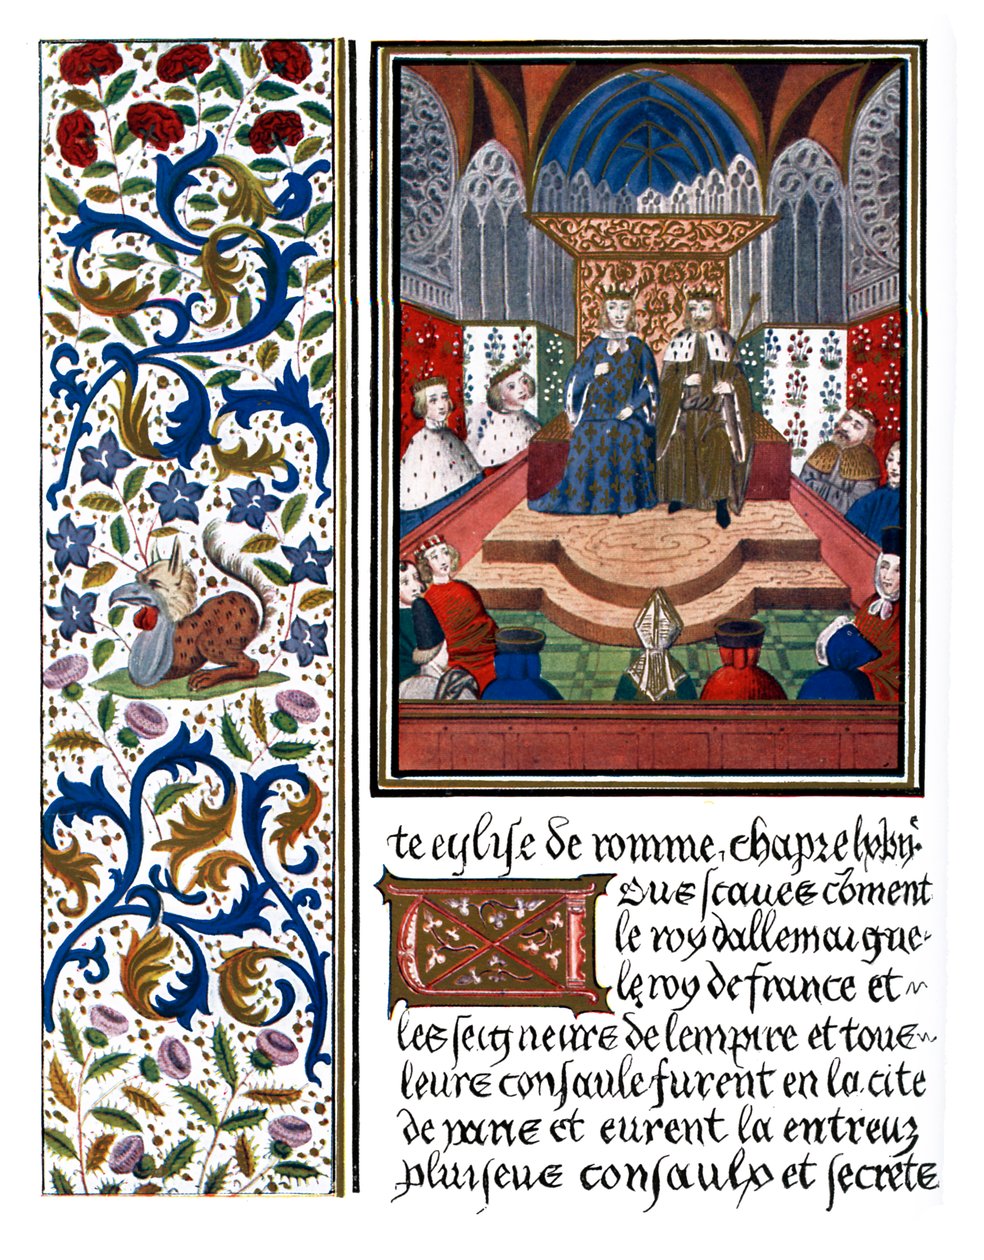 te eglise de romme, chapre lxviij.e
Ous scaves cõment
le roy dallemaigne
le roy de france et
les seigneurs de lempire et tous
leurs consaulx furent en la cite
de et eurent la entreuz
pluiseus consaulx et secrete